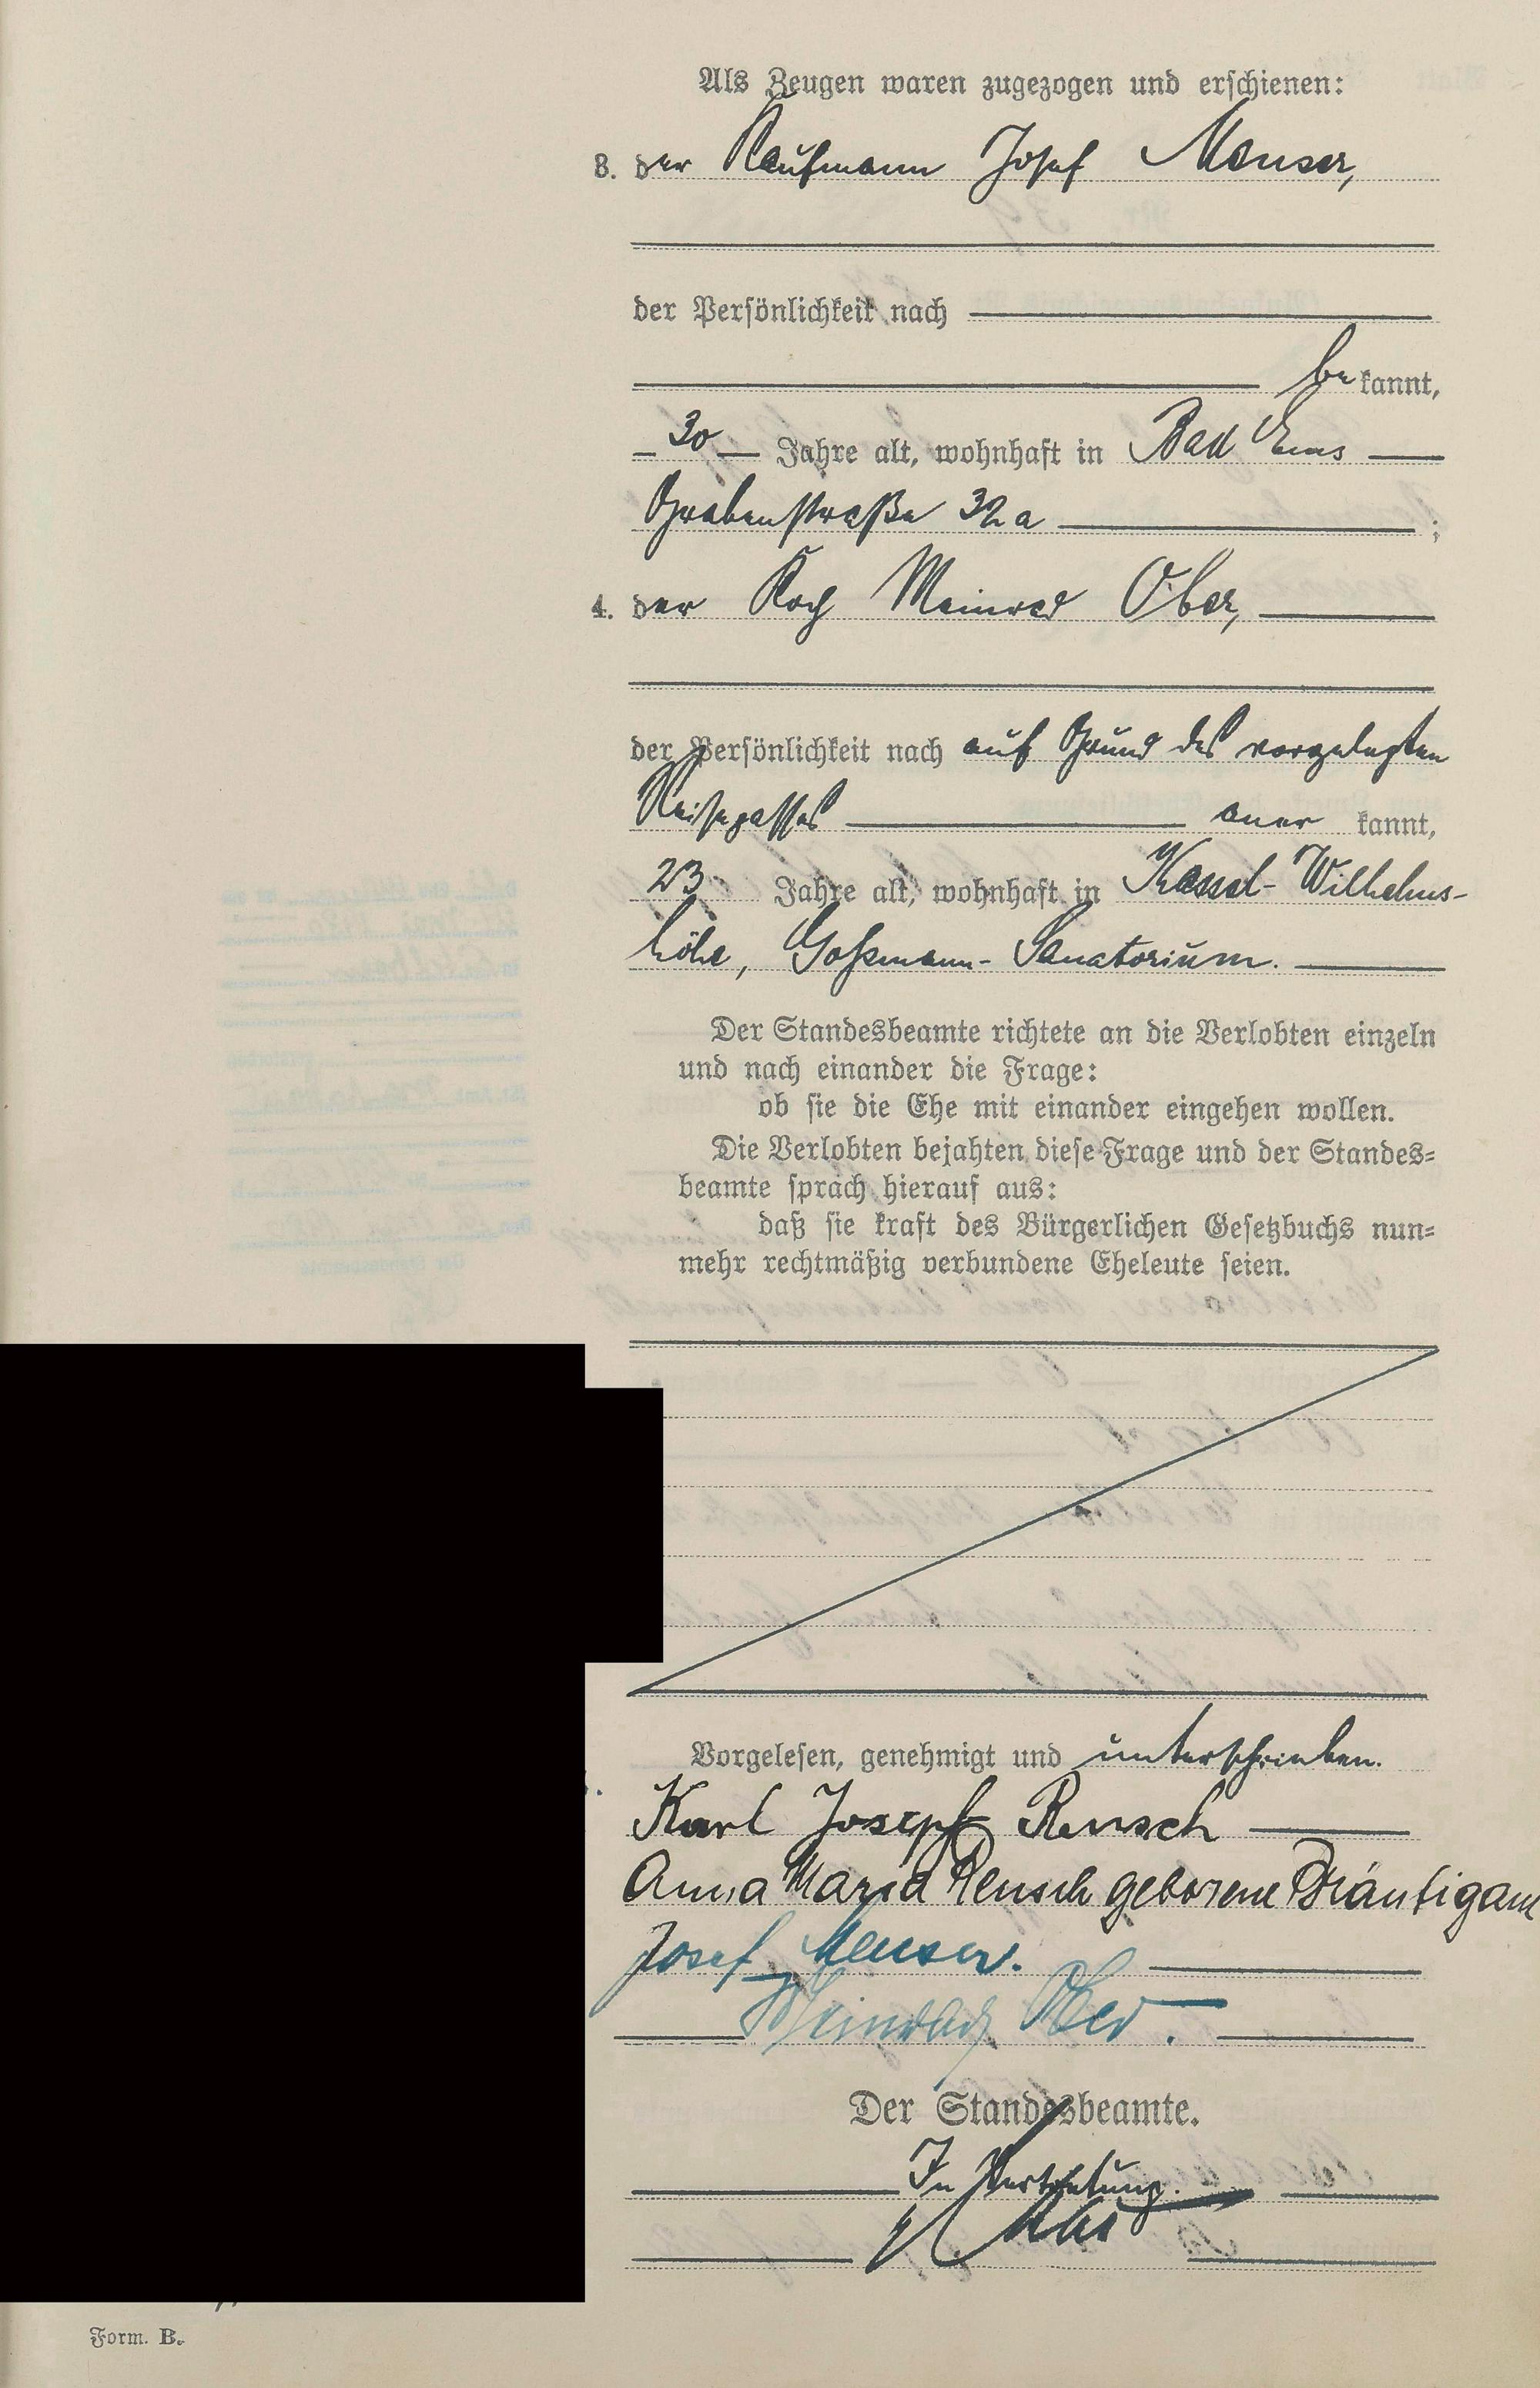 Als Zeugen waren zugezogen und erschienen:
3. der Kaufmann Josef Menser,
der Persönlichkeit nach
be kannt,
30 Jahre alt, wohnhaft in Bad Ems
Grabenstraße 32a ;
4. der Koch Meinrad Ober,
der Persönlichkeit nach auf Grund des vorgelegten
Reisepasses aner kannt,
23 Jahre alt, wohnhaft in Kassel-Wilhelms-
höhe, Goßmann-Sanatorium.
Der Standesbeamte richtete an die Verlobten einzeln
und nach einander die Frage:
ob sie die Ehe mit einander eingehen wollen.
Die Verlobten bejahten diese Frage und der Standes=
beamte sprach hierauf aus:
daß sie kraft des Bürgerlichen Gesetzbuchs nun=
mehr rechtmäßig verbundene Eheleute seien.
Vorgelesen, genehmigt und unterschrieben.
Karl Joseph Rensch
Anna Maria Rensch geborene Bräutigam
Josef Menser.
Meinrad Ober.
Der Standesbeamte.
In Vertretung.
Form. B.